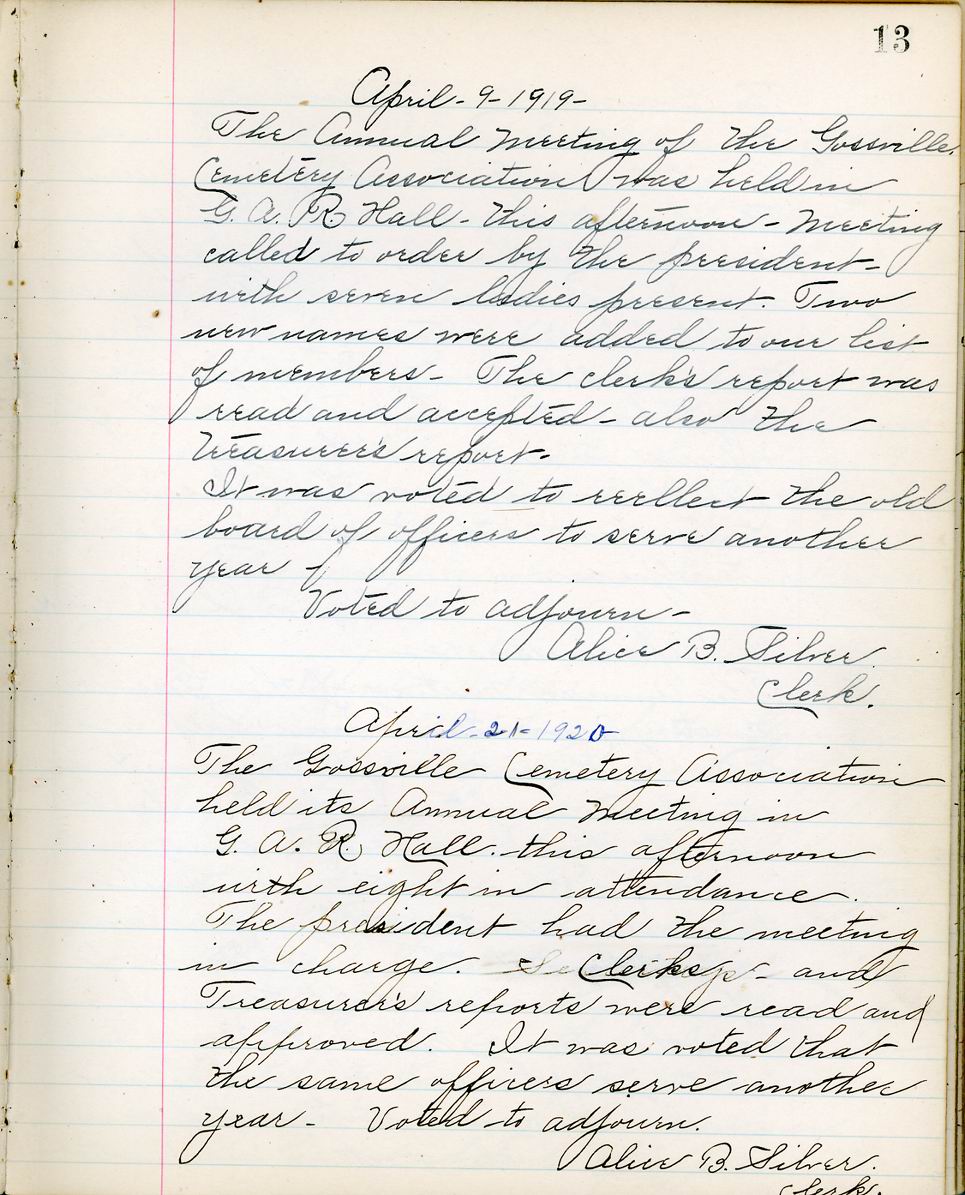 13
April - 9 - 1919 -
The Annual Meeting of the Gossville
Cemetery Association was held in
G. A. R Hall - this afternoon - Meeting
called to order by the president -
with seven ladies present. Two
new names were added to our list
of members - The clerk's report was
read and accepted - also the
Treasurer's report.
It was voted to reellect the old
board of officers to serve another
year -
Voted to adjourn -
Alice B. Silver.
Clerk.
April - 21 - 1920
The Gossville Cemetery Association
held its Annual Meeting in
G. A. R. Hall. this afternoon
with eight in attendance.
The president had the meeting
in charge. Clerks - and
Treasurer's reports were read and
approved. It was voted that
the same officers serve another
year - Voted to adjourn.
Alice B. Silver.
Clerk.